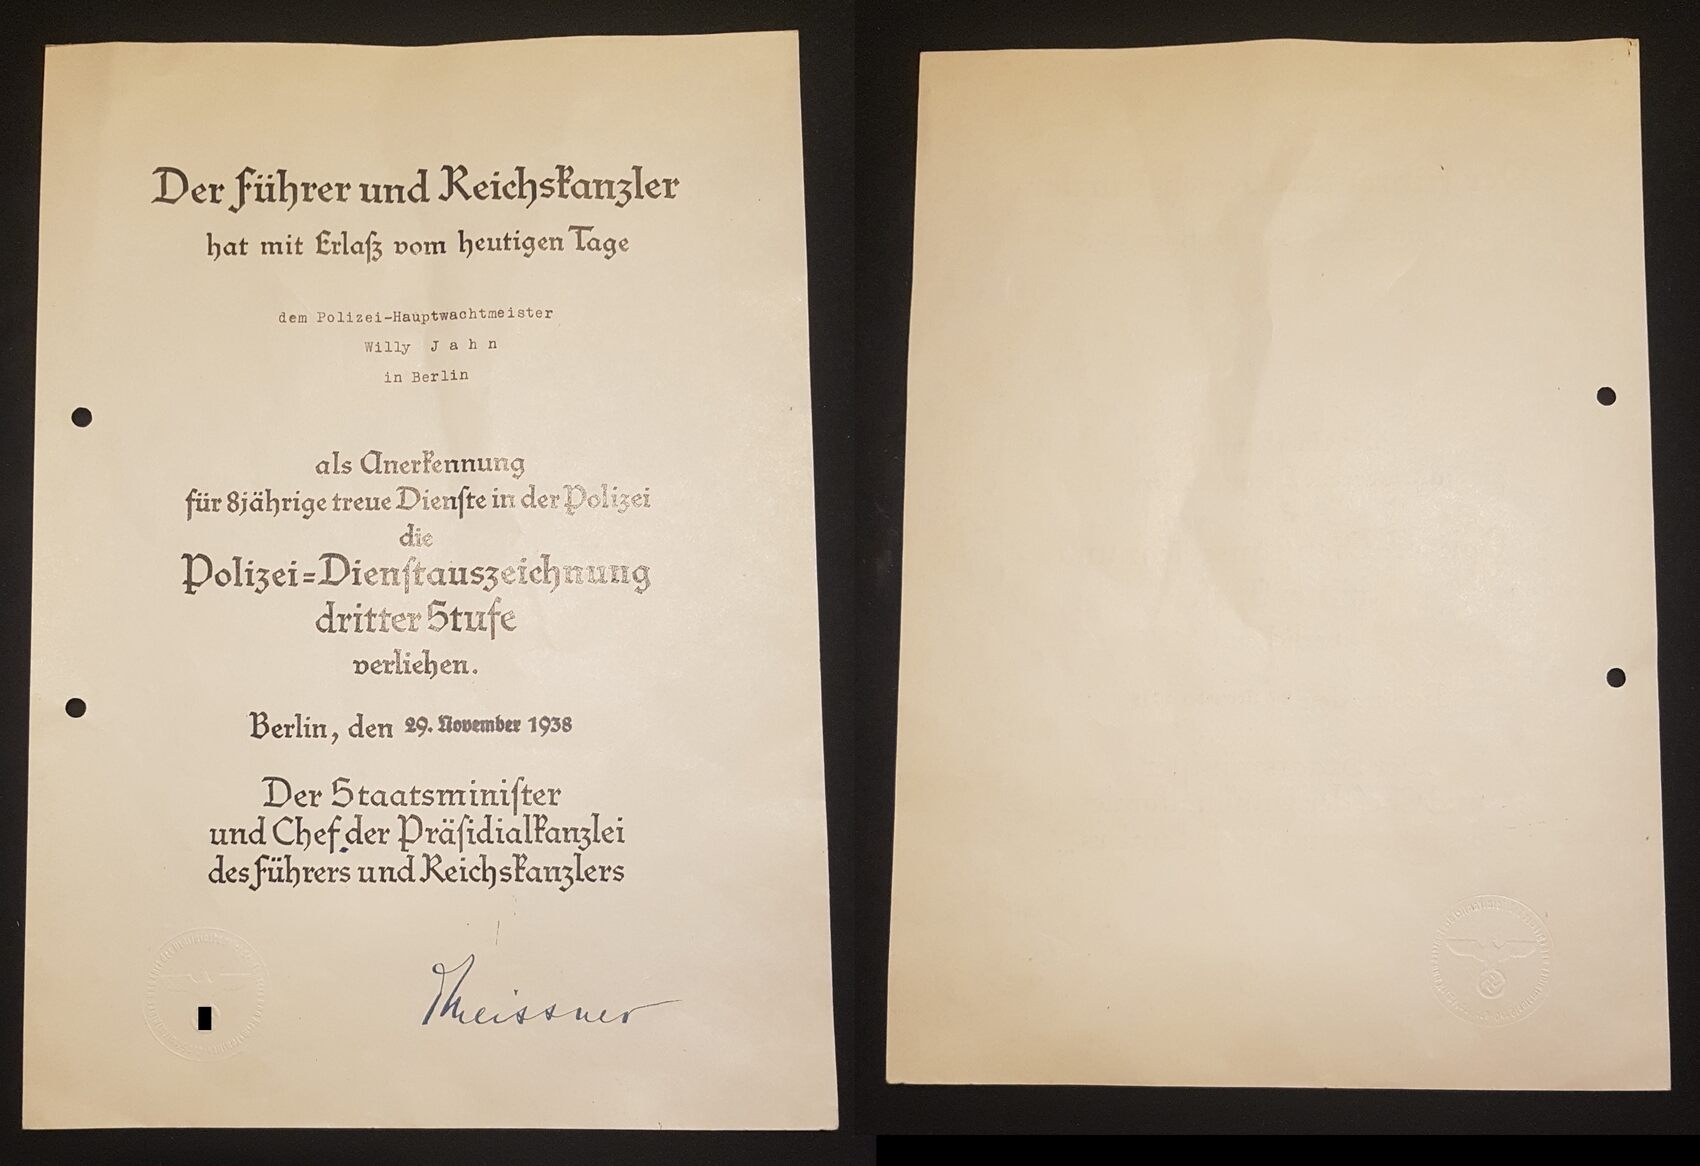 Der Führer und Reichskanzler
hat mit Erlaß vom heutigen Tage
dem Polizei-Hauptwachtmeister
Willy J a h n
in Berlin
als Anerkennung
für 8jährige treue Dienste in der Polizei
die
Polizei=Dienstauszeichnung
dritter Stufe
verliehen.
Berlin, den 29. November 1938
Der Staatsminister
und Chef der Präsidialkanzlei
des Führers und Reichskanzlers
Meissner